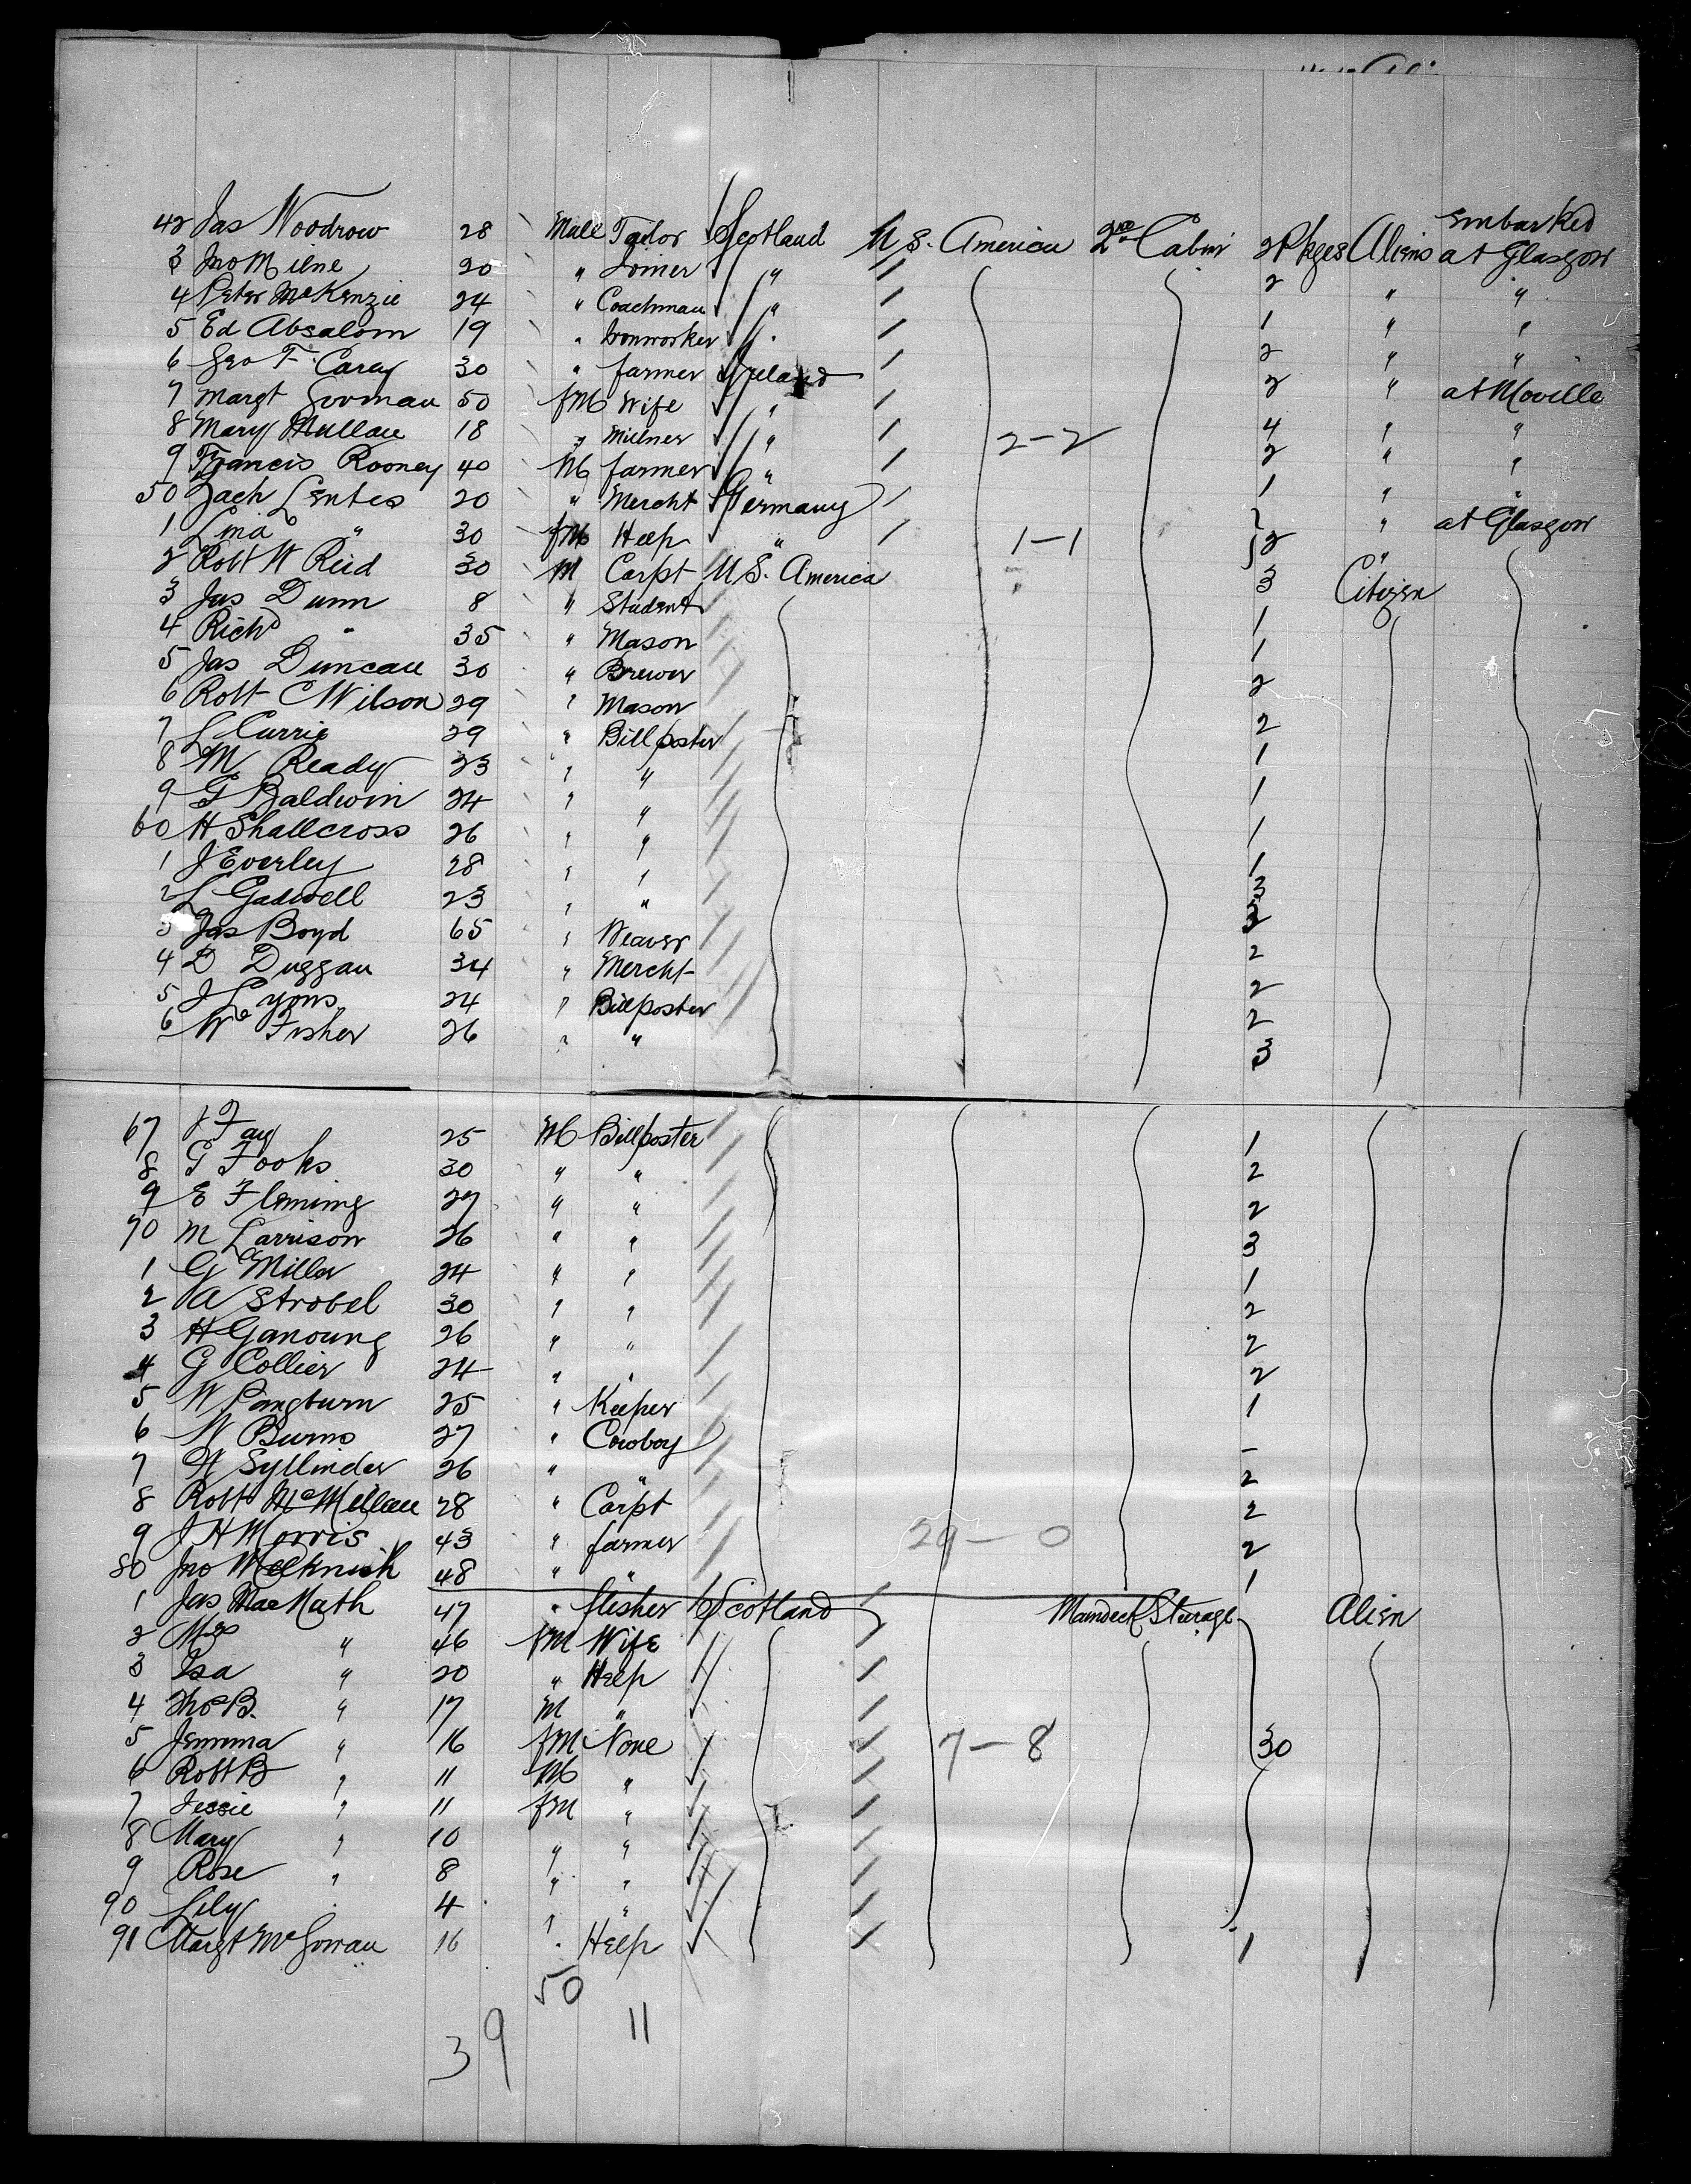 42 Jas Woodrow 28 Male Tailor Scotland U S. America 2nd Cabin 2 Pkges Aliens Embarked at Glasgow
3 Jno Milne 20 " Joiner " 2 " "
4 Peter McKenzie 24 " Coachman " 1 " "
5 Ed Absalom 19 " Ironworker " 2 " "
6 Geo F. Carey 30 " farmer Ireland 2 " at Moville
7 Margt Gorman 50 fM Wife " 4 " "
8 Mary Mullan 18 " Milner " 2-2 2 " "
9 Francis Rooney 40 M farmer " 1 " "
50 Zach Lentes 20 " Mercht Germany " at Glasgow
1 Lina " 30 fM Help " 1-1 2 "
2 Robt W Reid 30 M Carpt U S. America 3 Citizen
3 Jas Dunn 8 " Student 1
4 Richd " 35 " Mason 1
5 Jas Duncan 30 " Brewer 2
6 Robt C Wilson 29 " Mason 2
7 L Currie 29 " Billposter 1
8 M Ready 23 " " 1
9 G Baldwin 24 " " 1
60 H Shallcross 26 " " 1
1 J Everley 28 " " 3
2 L Gadwell 23 " "
3 Jas Boyd 65 " Weaver 2
4 D Duggan 34 " Mercht 2
5 J Lyons 24 " Billposter 2
6 Wm Fisher 26 " " 3
67 J Fay 25 M Billposter 1
8 G Fooks 30 " " 2
9 E Fleming 27 " " 2
70 M Larrison 26 " " 3
1 G Miller 24 " " 1
2 A Strobel 30 " " 2
3 H Ganoung 26 " " 2
4 G Collier 24 " " 2
5 W Pangburn 25 " Keeper 1
6 W Burns 27 " Cowboy -
7 H Syllinder 26 " " 2
8 Robt McMillan 28 " Carpt 2
9 J H Morris 43 " farmer 29-0 2
80 Jno 48 " " 1
1 Jas MacMath 47 " flesher Scotland Maindeck Steerage Alien
2 Mrs " 46 fM Wife
3 Isa " 20 " Help
4 Thos B. " 17 M "
5 Jemima " 16 fM None 7-8 30
6 Robt B " 11 M "
7 Jessie " 11 fM "
8 Mary " 10 " "
9 Rose " 8 " "
90 Lily " 4 " "
91 Margt McGowan 16 " Help 1
50
39 11